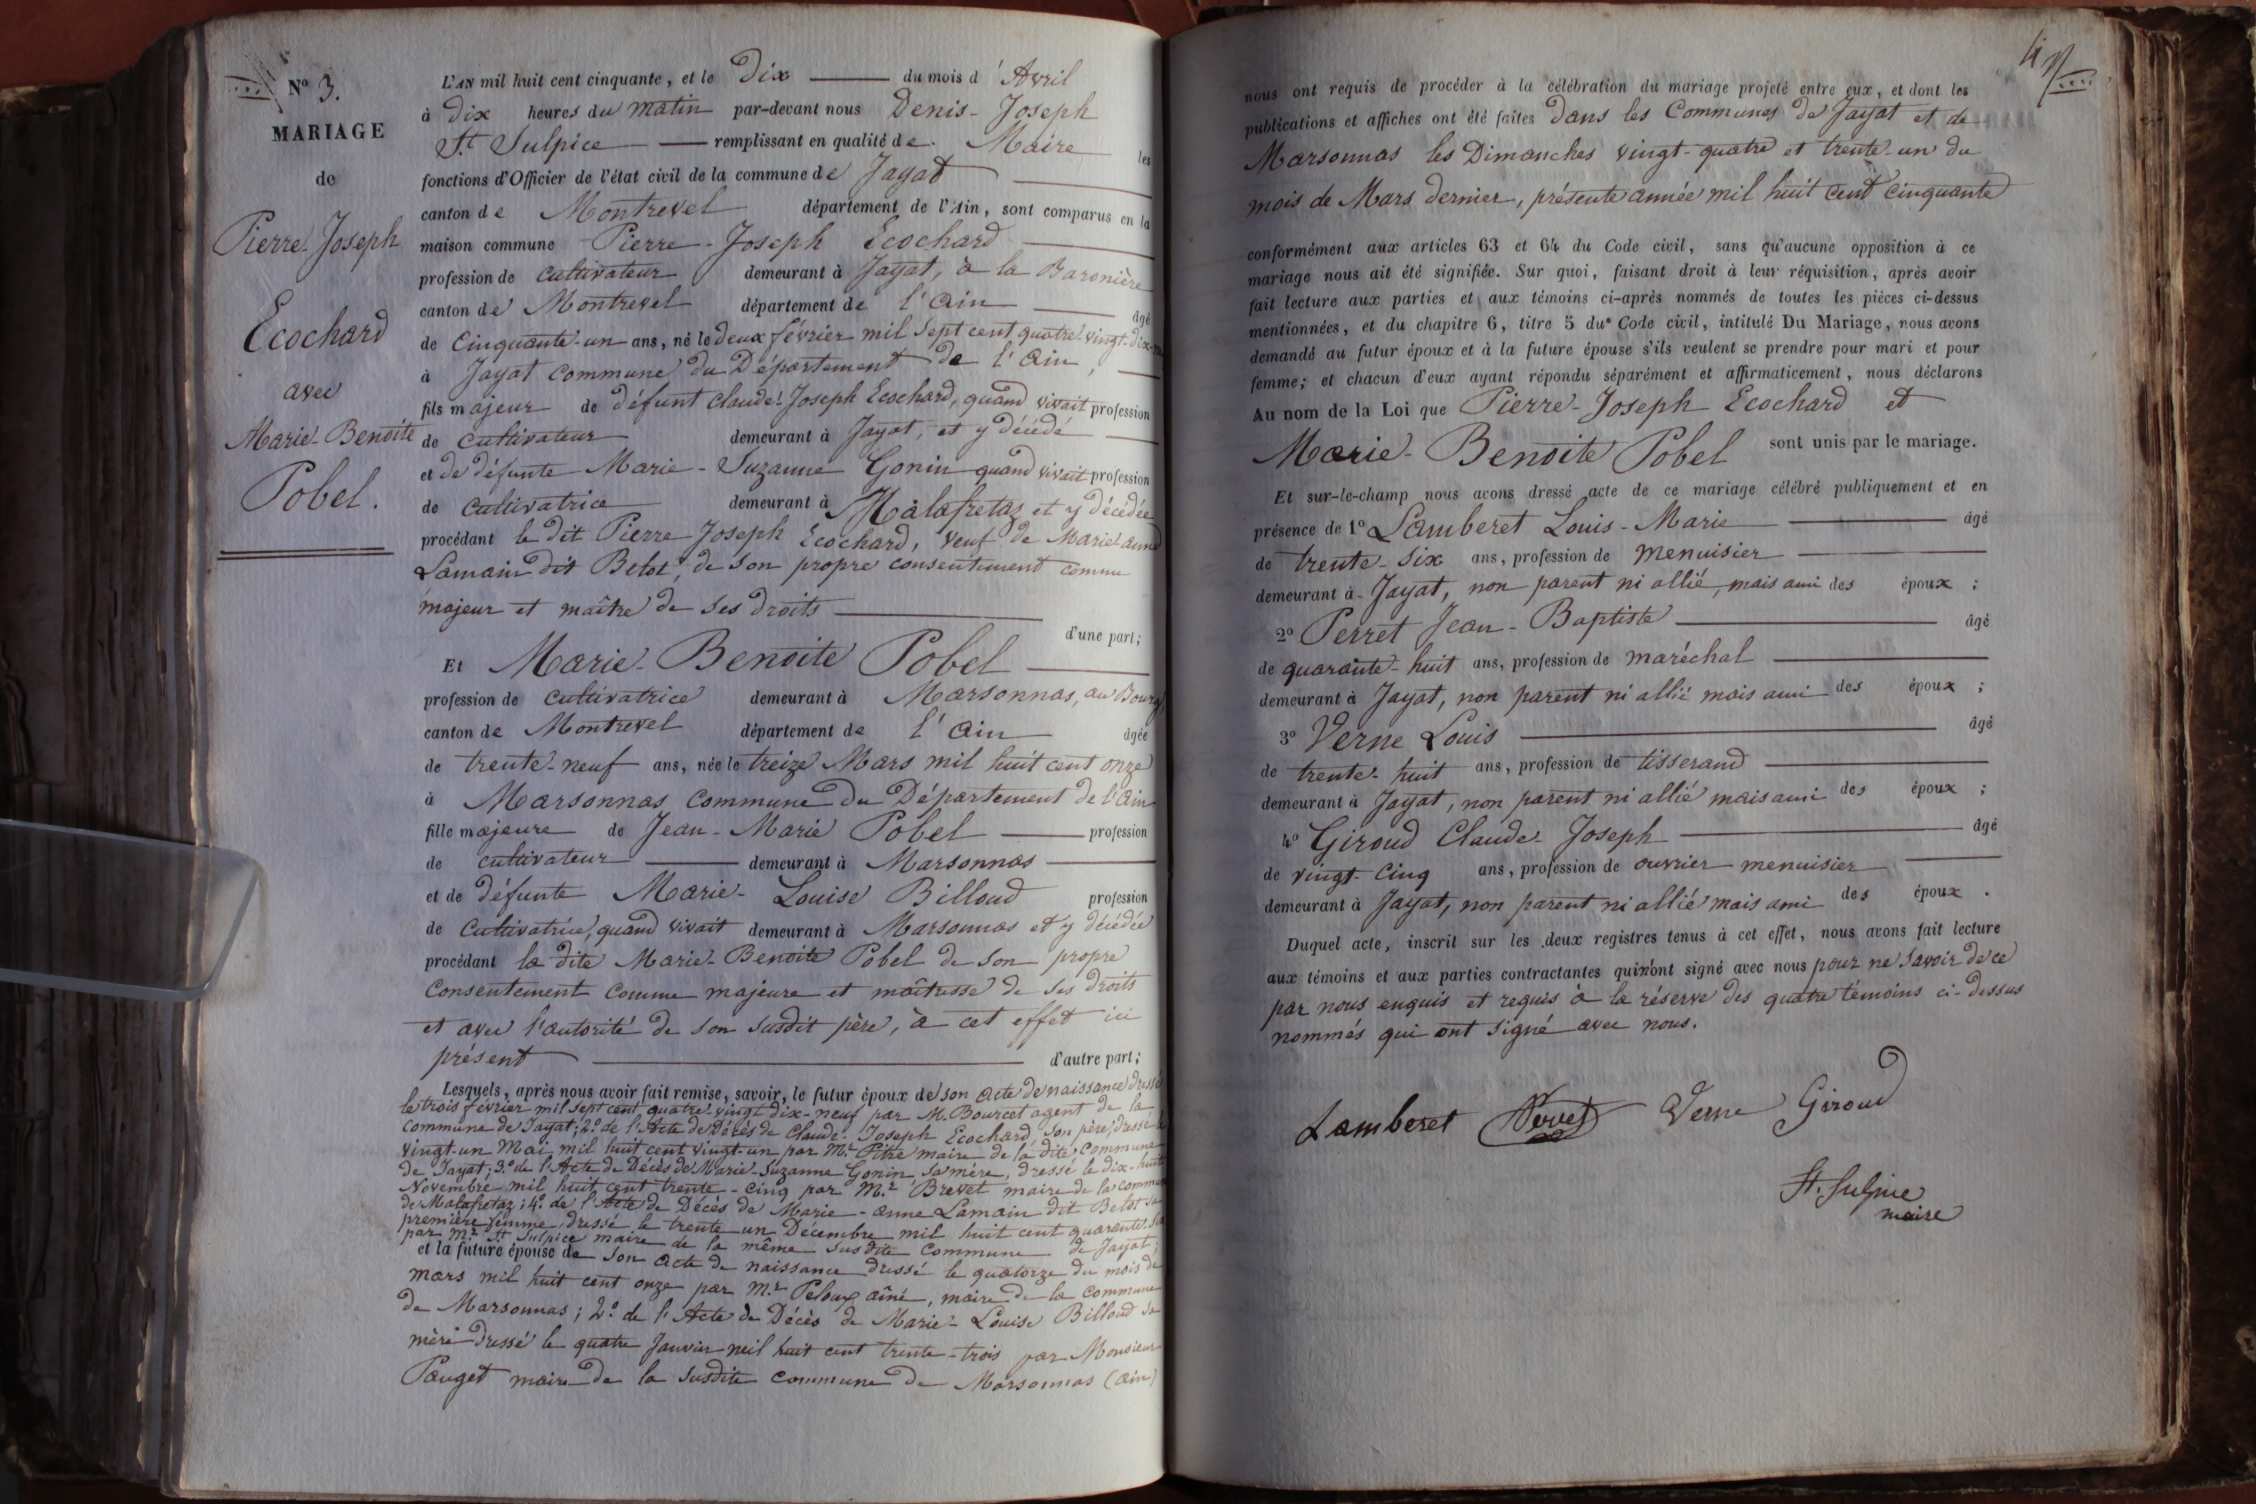 N.o 3.
MARIAGE
de
Pierre-Joseph
Ecochard
avec
Marie-Benoite
Pobel.
L'AN mil huit cent cinquante, et le Dix du mois d'Avril
à dix heures du matin par-devant nous Denis-Joseph
St. Sulpice remplissant en qualité de Maire les
fonctions d'Officier de l'état civil de la commune de Jayat
canton de Montrevel département de l'Ain, sont comparus en la
maison commune Pierre-Joseph Ecochard
profession de cultivateur demeurant à Jayat, à la Baronière
canton de Montrevel département de l'Ain âgé
de Cinquante-un ans, né le deux février mil sept cent quatre-vingt-dix-
à Jayat commune du Département de l'Ain,
fils majeur de défunt Claude-Joseph Ecochard, quand vivait profession
de cultivateur demeurant à Jayat, et y décédé
et de défunte Marie-Suzanne Gonin quand vivait profession
de cultivatrice demeurant à Malafretaz et y décédée
procédant le dit Pierre Joseph Ecochard, veuf de Marie-anne
Lamain dit Belot, de son propre consentement comme
majeur et maître de ses droits
d'une part;
Et Marie-Benoite Pobel
profession de cultivatrice demeurant à Marsonnas, au Bourg
canton de Montrevel département de l'Ain âgée
de trente-neuf ans, née le treize Mars mil huit cent onze
à Marsonnas commune du Département de l'Ain
fille majeure de Jean-Marie Pobel profession
de cultivateur demeurant à Marsonnas
et de défunte Marie-Louise Billoud profession
de cultivatrice, quand vivait demeurant à Marsonnas et y décédée
procédant la dite Marie-Benoite Pobel de son propre
consentement comme majeure et maîtresse de ses droits
et avec l'autorité de son susdit père, à cet effet ici
présent d'autre part;
Lesquels, après nous avoir fait remise, savoir, le futur époux de son acte de naissance dressé
le trois février mil sept cent quatre-vingt dix-neuf par M. Bourcet agent de la
commune de Jayat; 2.o de l'Acte de Décès de Claude-Joseph Ecochard, son père, dressé le
vingt-un Mai mil huit cent vingt-un par Mr. Pitre maire de la dite Commune
de Jayat; 3.o de l'Acte de Décès de Marie-Suzanne Gonin sa mère, dressé le dix-huit
Novembre mil huit cent trente-cinq par Mr. Brevet maire de la commune
de Malafretaz; 4.o de l'Acte de Décès de Marie-anne Lamain dit Belot sa
première femme, dressé le trente un Décembre mil huit cent quarante-
par Mr. St Sulpice maire de la même susdite commune de Jayat;
et la future épouse de son acte de naissance dressé le quatorze du mois de
mars mil huit cent onze par Mr. Peloux aîné, maire de la commune
de Marsonnas; 2.o de l'Acte de Décès de Marie-Louise Billoud sa
mère dressé le quatre Janvier mil huit cent trente-trois par Monsieur
Pauget maire de la susdite commune de Marsonnas (ain)
nous ont requis de procéder à la célébration du mariage projeté entre eux, et dont les
publications et affiches ont été faites dans les Communes de Jayat et de
Marsonnas les Dimanches vingt-quatre et trente-un du
mois de Mars dernier, présente année mil huit cent cinquante
conformément aux articles 63 et 64 du Code civil, sans qu'aucune opposition à ce
mariage nous ait été signifiée. Sur quoi, faisant droit à leur réquisition, après avoir
fait lecture aux parties et aux témoins ci-après nommés de toutes les pièces ci-dessus
mentionnées, et du chapitre 6, titre 5 du Code civil, intitulé Du Mariage, nous avons
demandé au futur époux et à la future épouse s'ils veulent se prendre pour mari et pour
femme; et chacun d'eux ayant répondu séparément et affirmativement, nous déclarons
Au nom de la Loi que Pierre-Joseph Ecochard et
Marie-Benoite Pobel sont unis par le mariage.
Et sur-le-champ nous avons dressé acte de ce mariage célébré publiquement et en
présence de 1o Lamberet Louis-Marie âgé
de trente-six ans, profession de menuisier
demeurant à Jayat, non parent ni allié, mais ami des époux;
2o Perret Jean-Baptiste âgé
de quarante-huit ans, profession de maréchal
demeurant à Jayat, non parent ni allié mais ami des époux;
3o Verne Louis âgé
de trente-huit ans, profession de tisserand
demeurant à Jayat, non parent ni allié mais ami des époux;
4o Giroud Claude-Joseph âgé
de vingt-cinq ans, profession de ouvrier menuisier
demeurant à Jayat, non parent ni allié mais ami des époux.
Duquel acte, inscrit sur les deux registres tenus à cet effet, nous avons fait lecture
aux témoins et aux parties contractantes qui n'ont signé avec nous pour ne savoir de ce
par nous enquis et requis à la réserve des quatre témoins ci-dessus
nommés qui ont signé avec nous.
Lamberet Perret Verne Giroud
St. Sulpice
maire